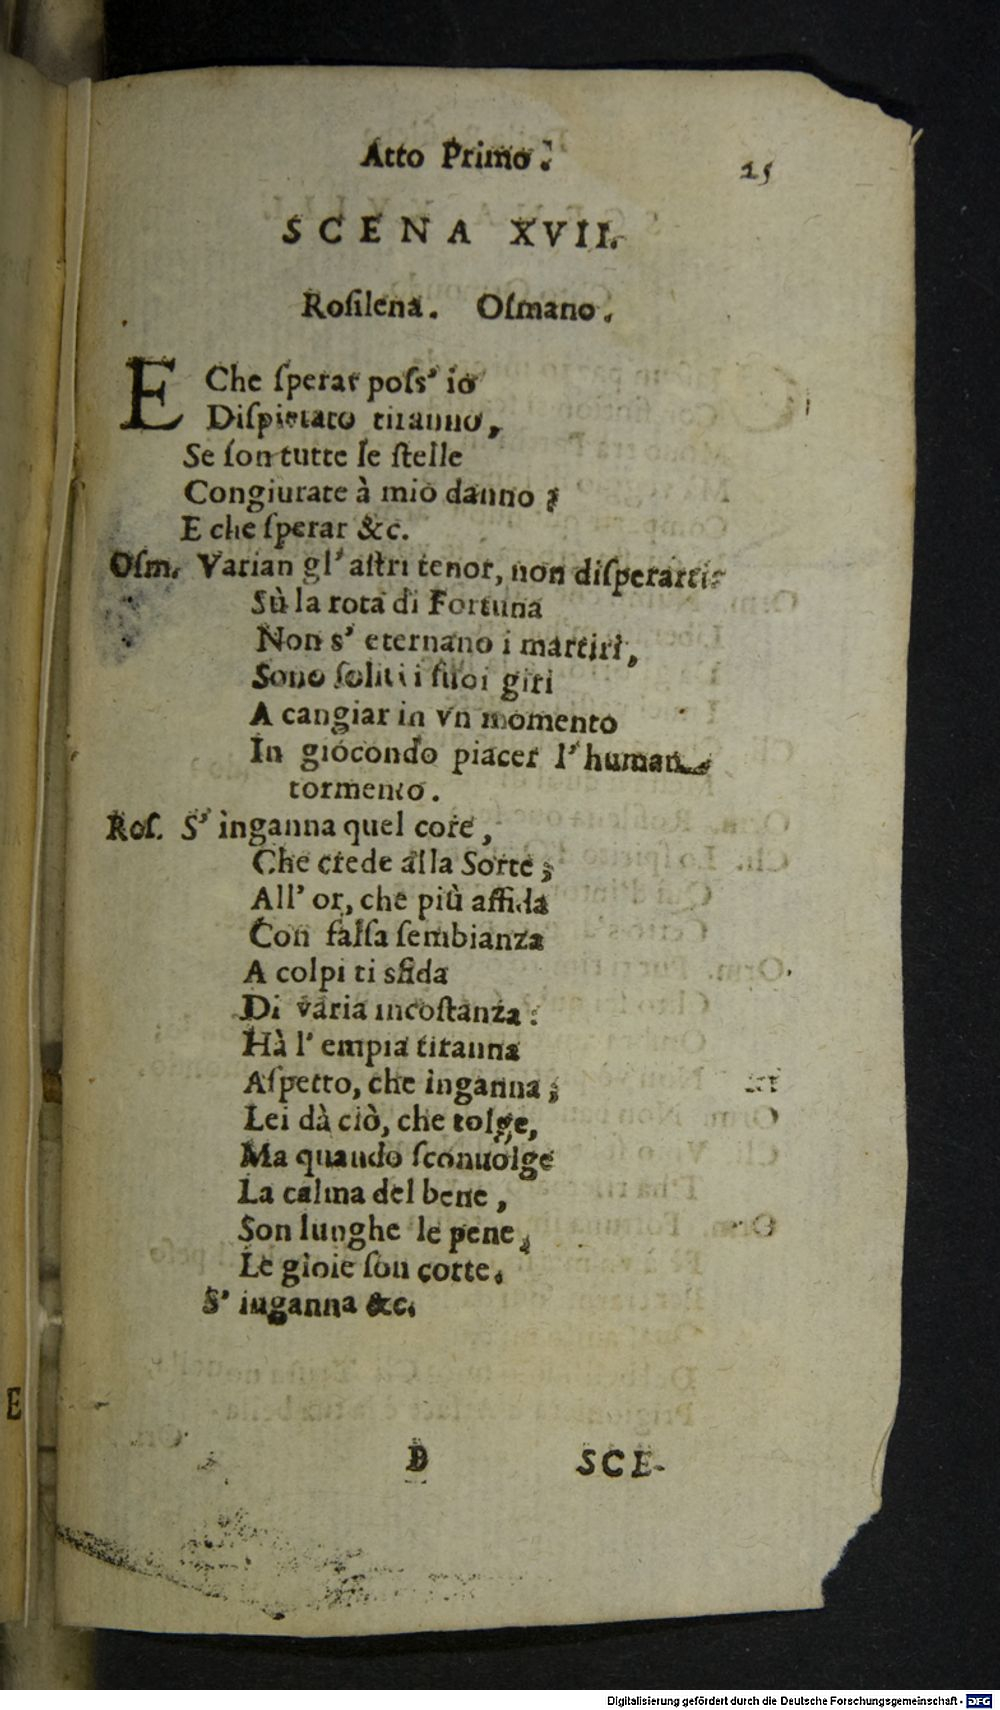 Atto Primo.
25
SCENA XVII.
Roſilena. Oſmano.
E Che ſperar poſs' io
Diſpietato tiranno,
Se ſon tutte le ſtelle
Congiurate à mio danno;
E che ſperar &c.
Oſm. Varian gl' aſtri tenor, non diſperarti:
Sù la rota di Fortuna
Non s' eternano i martiri,
Sono ſoliti i ſuoi giri
A cangiar in vn momento
In giocondo piacer l' human
tormento.
Roſ. S' inganna quel core,
Che crede alla Sorte;
All' or, che più affida
Con falſa ſembianza
A colpi ti sfida
Di varia incoſtanza:
Hà l' empia tiranna
Aſpetto, che inganna;
Lei dà ciò, che tolge,
Ma quando ſconuolge
La calma del bene,
Son lunghe le pene,
Le gioie ſon corte.
S' inganna &c.
D
SCE-
E
Digitalisierung gefördert durch die Deutsche Forschungsgemeinschaft - DFG